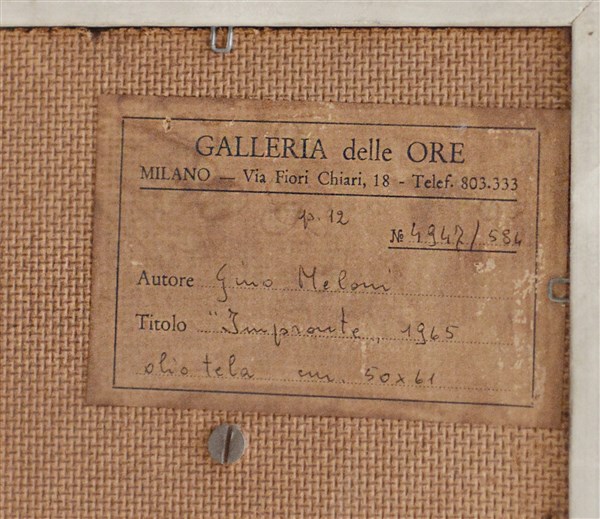 GALLERIA delle ORE
MILANO — Via Fiori Chiari, 18 - Telef. 803.333
p. 12
№ 4947/584
Autore Gino Meloni
Titolo "Impronte, 1965
olio tela cm. 50x61